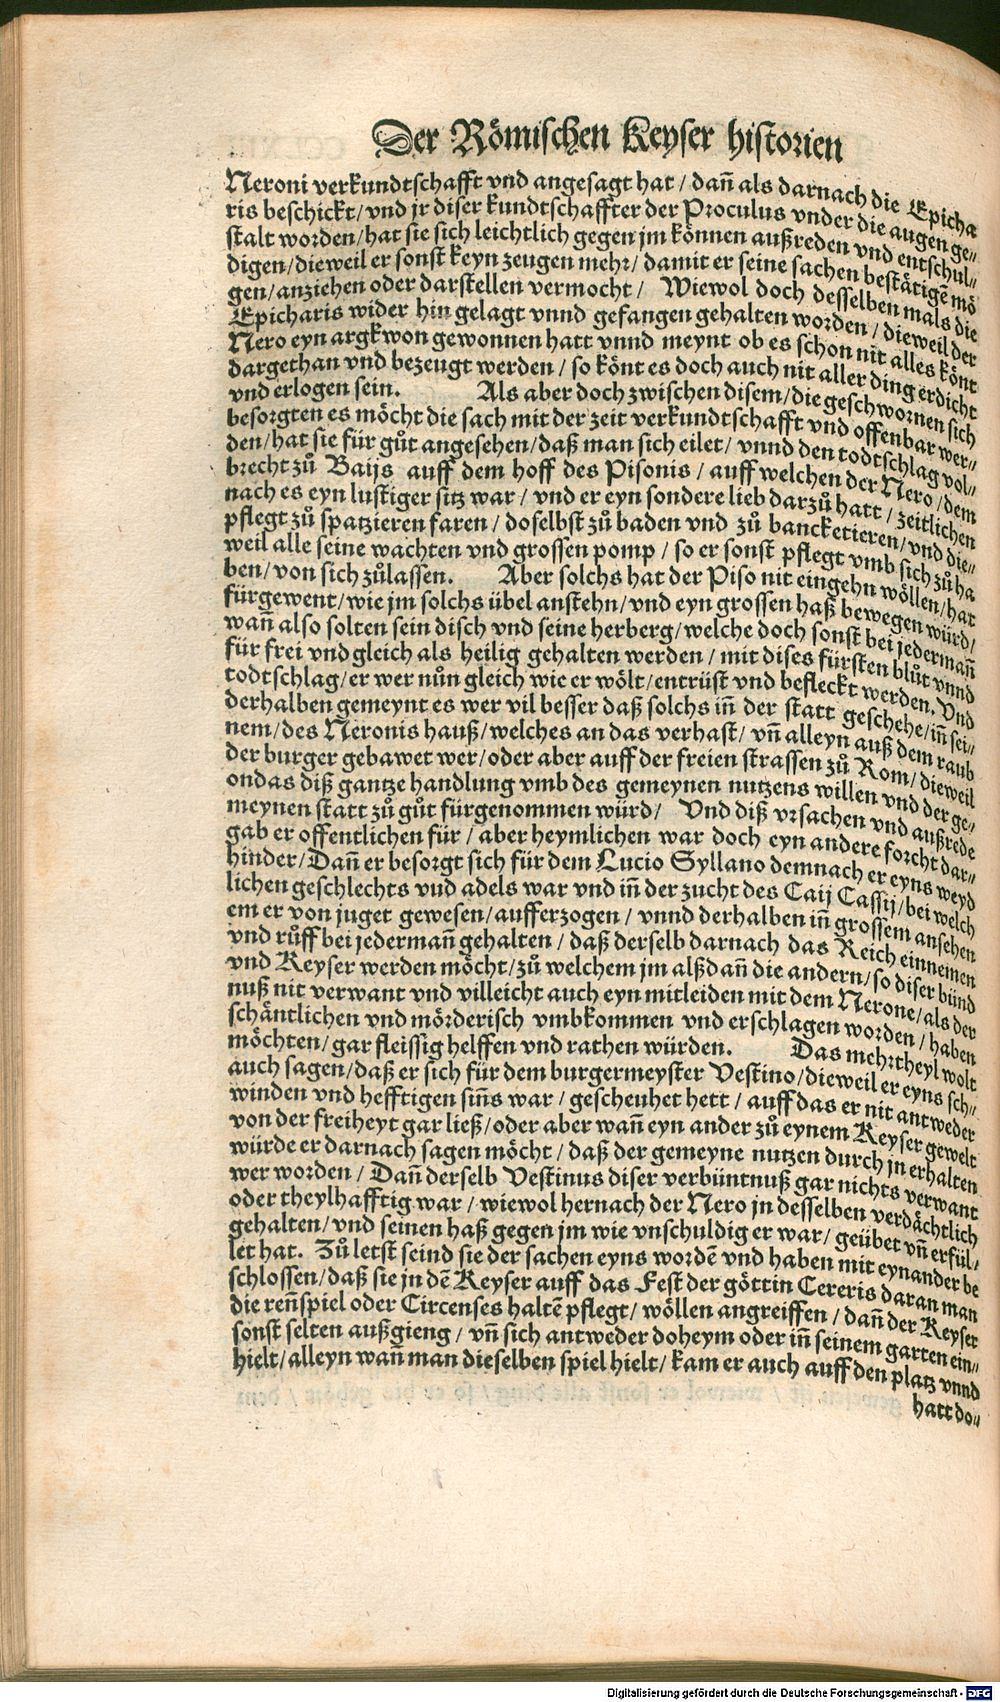 Der Römischen Keyser historien
Neroni verkundtschafft vnd angesagt hat / dañ als darnach die Epicha
ris beschickt / vnd jr diser kundtschaffter der Proculus vnder die augen ge⸗
stalt worden / hat sie sich leichtlich gegen jm können außreden vnd entschul⸗
digen / dieweil er sonst keyn zeugen mehr / damit er seine sachen bestätigẽ mö
gen / anziehen oder darstellen vermocht / Wiewol doch desselben mals die
Epicharis wider hin gelagt vnnd gefangen gehalten worden / dieweil der
Nero eyn argkwon gewonnen hatt vnnd meynt ob es schon nit alles könt
dargethan vnd bezeugt werden / so könt es doch auch nit aller ding erdicht
vnd erlogen sein. Als aber doch zwischen disem / die geschwornen sich
besorgten es möcht die sach mit der zeit verkundtschafft vnd offenbar wer⸗
den / hat sie für gůt angesehen / daß man sich eilet / vnnd den todtschlag vol⸗
brecht zů Baijs auff dem hoff des Pisonis / auff welchen der Nero / dem
nach es eyn lustiger sitz war / vnd er eyn sondere lieb darzů hatt / zeitlichen
pflegt zů spatzieren faren / doselbst zů baden vnd zů bancketieren / vnd die⸗
weil alle seine wachten vnd grossen pomp / so er sonst pflegt vmb sich zů ha
ben / von sich zůlassen. Aber solchs hat der Piso nit eingehn wöllen / hat
fürgewent / wie jm solchs übel anstehn / vnd eyn grossen haß bewegen würd /
wañ also solten sein disch vnd seine herberg / welche doch sonst bei jedermañ
für frei vnd gleich als heilig gehalten werden / mit dises fürsten blůt vnnd
todtschlag / er wer nůn gleich wie er wölt / entrüst vnd befleckt werden. Vnd
derhalben gemeynt es wer vil besser daß solchs iñ der statt geschehe / iñ sei⸗
nem / des Neronis hauß / welches an das verhast / vñ alleyn auß dem raub
der burger gebawet wer / oder aber auff der freien strassen zů Rom / dieweil
ondas diß gantze handlung vmb des gemeynen nutzens willen vnd der ge⸗
meynen statt zů gůt fürgenommen würd / Vnd diß vrsachen vnd außrede
gab er offentlichen für / aber heymlichen war doch eyn andere forcht dar⸗
hinder / Dañ er besorgt sich für dem Lucio Syllano demnach er eyns weyd
lichen geschlechts vnd adels war vnd iñ der zucht des Caij Cassij / bei welch
em er von juget gewesen / aufferzogen / vnnd derhalben iñ grossem ansehen
vnd růff bei jedermañ gehalten / daß derselb darnach das Reich einneinen
vnd Keyser werden möcht / zů welchem jm alßdañ die andern / so diser bünd
nuß nit verwant vnd villeicht auch eyn mitleiden mit dem Nerone / als der
schäntlichen vnd mörderisch vmbkommen vnd erschlagen worden / haben
möchten / gar fleissig helffen vnd rathen würden. Das mehrtheyl wolt
auch sagen / daß er sich für dem burgermeyster Vestino / dieweil er eyns sch⸗
winden vnd hefftigen siñs war / gescheuhet hett / auff das er nit antweder
von der freiheyt gar ließ / oder aber wañ eyn ander zů eynem Keyser gewelt
würde er darnach sagen möcht / daß der gemeyne nutzen durch jn erhalten
wer worden / Dañ derselb Vestinus diser verbüntnuß gar nichts verwant
oder theylhafftig war / wiewol hernach der Nero jn desselben verdächtlich
gehalten / vnd seinen haß gegen jm wie vnschuldig er war / geübet vñ erfül⸗
let hat. Zů letst seind sie der sachen eyns wordẽ vnd haben mit eynander be
schlossen / daß sie jn dẽ Keyser auff das Fest der göttin Cereris daran man
die reñspiel oder Circenses haltẽ pflegt / wöllen angreiffen / dañ der Keyser
sonst selten außgieng / vñ sich antweder doheym oder iñ seinem garten ein⸗
hielt / alleyn wañ man dieselben spiel hielt / kam er auch auff den platz vnnd
hatt do⸗
Digitalisierung gefördert durch die Deutsche Forschungsgemeinschaft - DFG